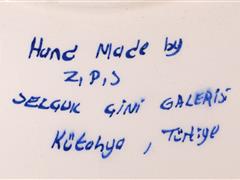 Hand Made by
Z,P,S
SELÇUK ÇİNİ GALERİSİ
Kütahya, Türkiye